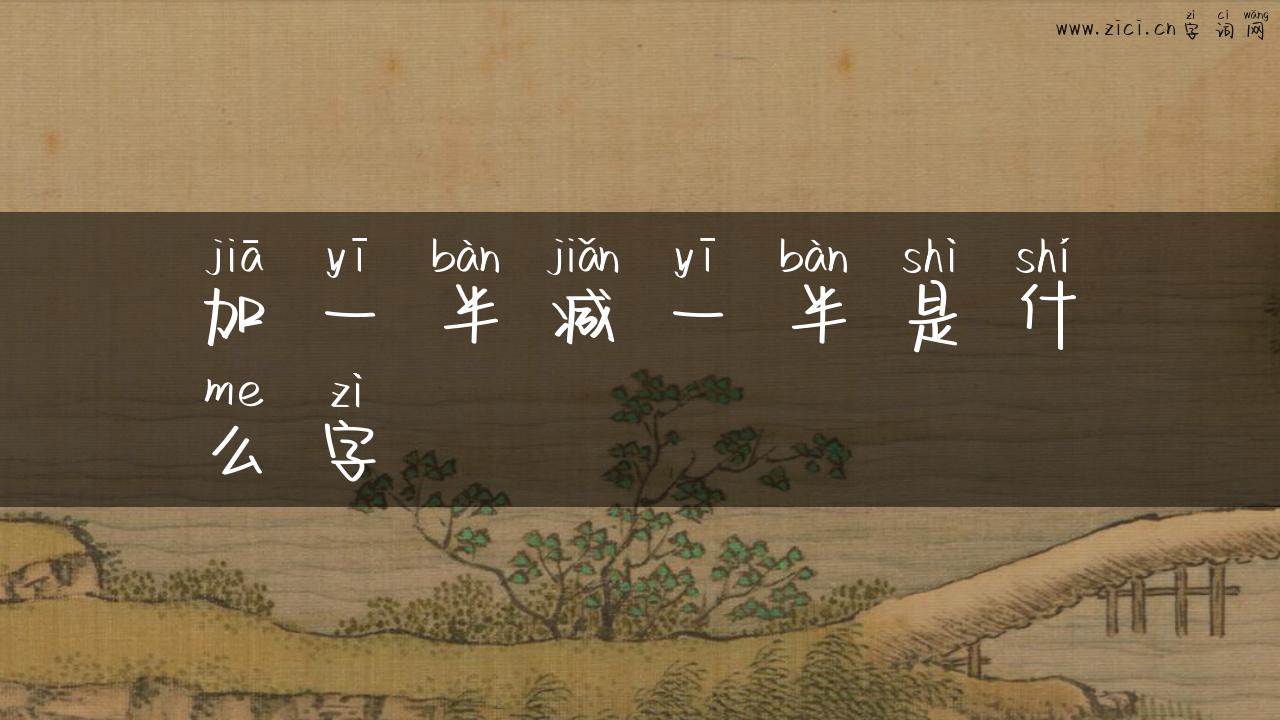 zì cí wǎng
www.zici.cn 字词网
jiā yī bàn jiǎn yī bàn shì shí
加一半减一半是什
me zì
么字